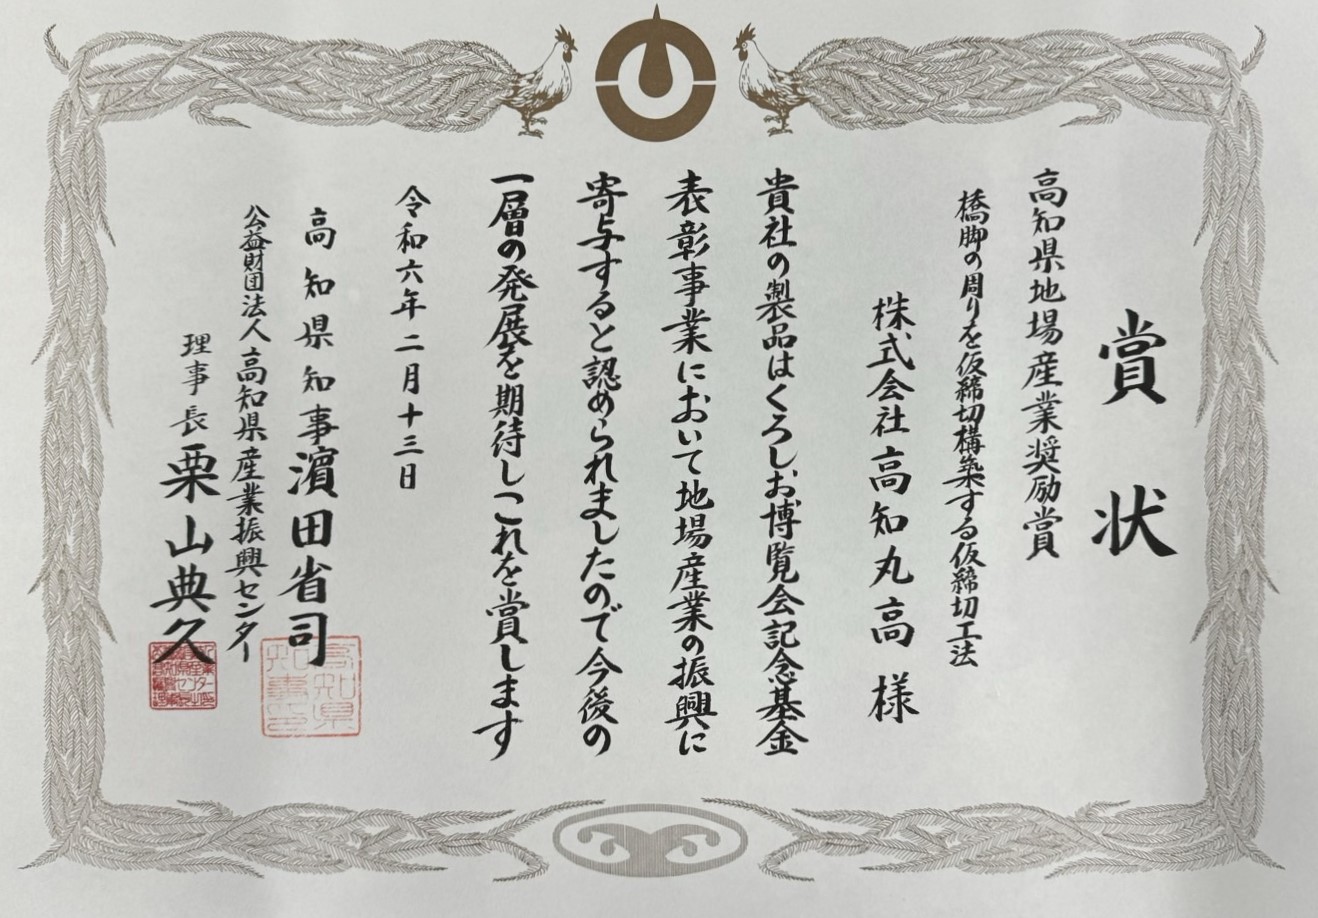 賞状
高知県地場産業奨励賞
橋脚の周りを仮締切構築する仮締切工法
株式会社高知丸高様
貴社の製品はくろしお博覧会記念基金
表彰事業において地場産業の振興に
寄与すると認められましたので今後の
一層の発展を期待しこれを賞します
令和六年二月十三日
高知県知事濵田省司
公益財団法人高知県産業振興センター
理事長栗山典久
高知県
知事之印